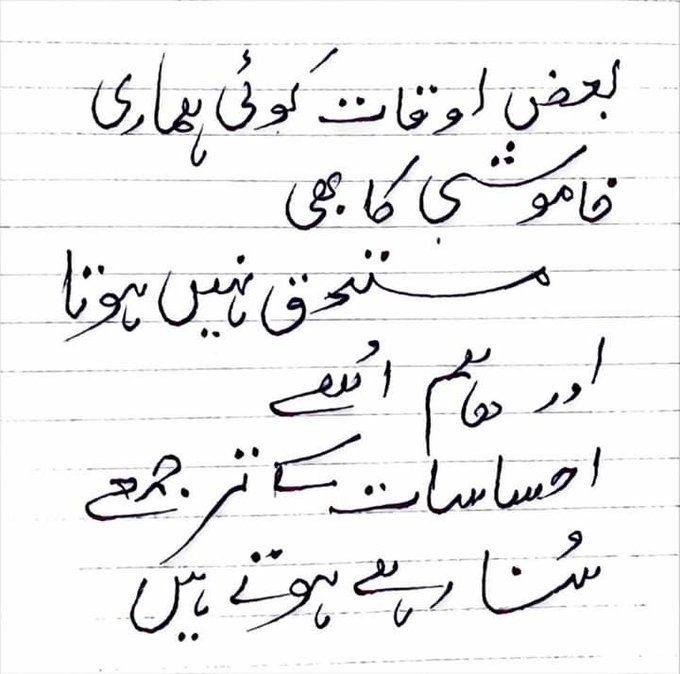 بعض اوقات کوئی ہماری
خاموشی کا بھی
مستحق نہیں ہوتا
اور ہم اُسے
احساسات کے ترجمے
سُنا رہے ہوتے ہیں